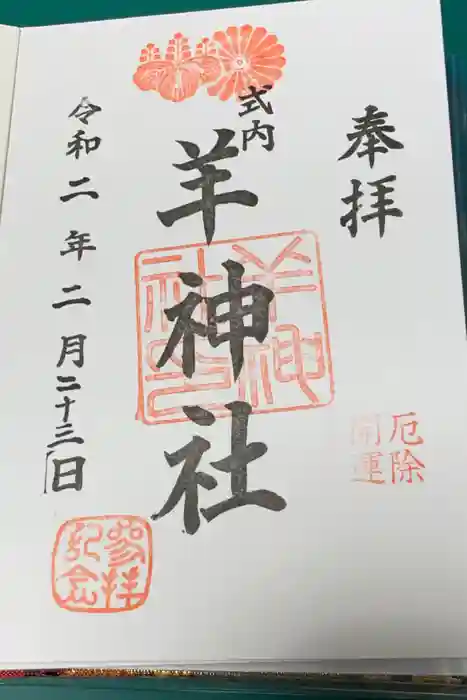 奉拝
厄除
開運
式内
羊神社
羊神社印
令和二年二月二十三日
参拝
記念